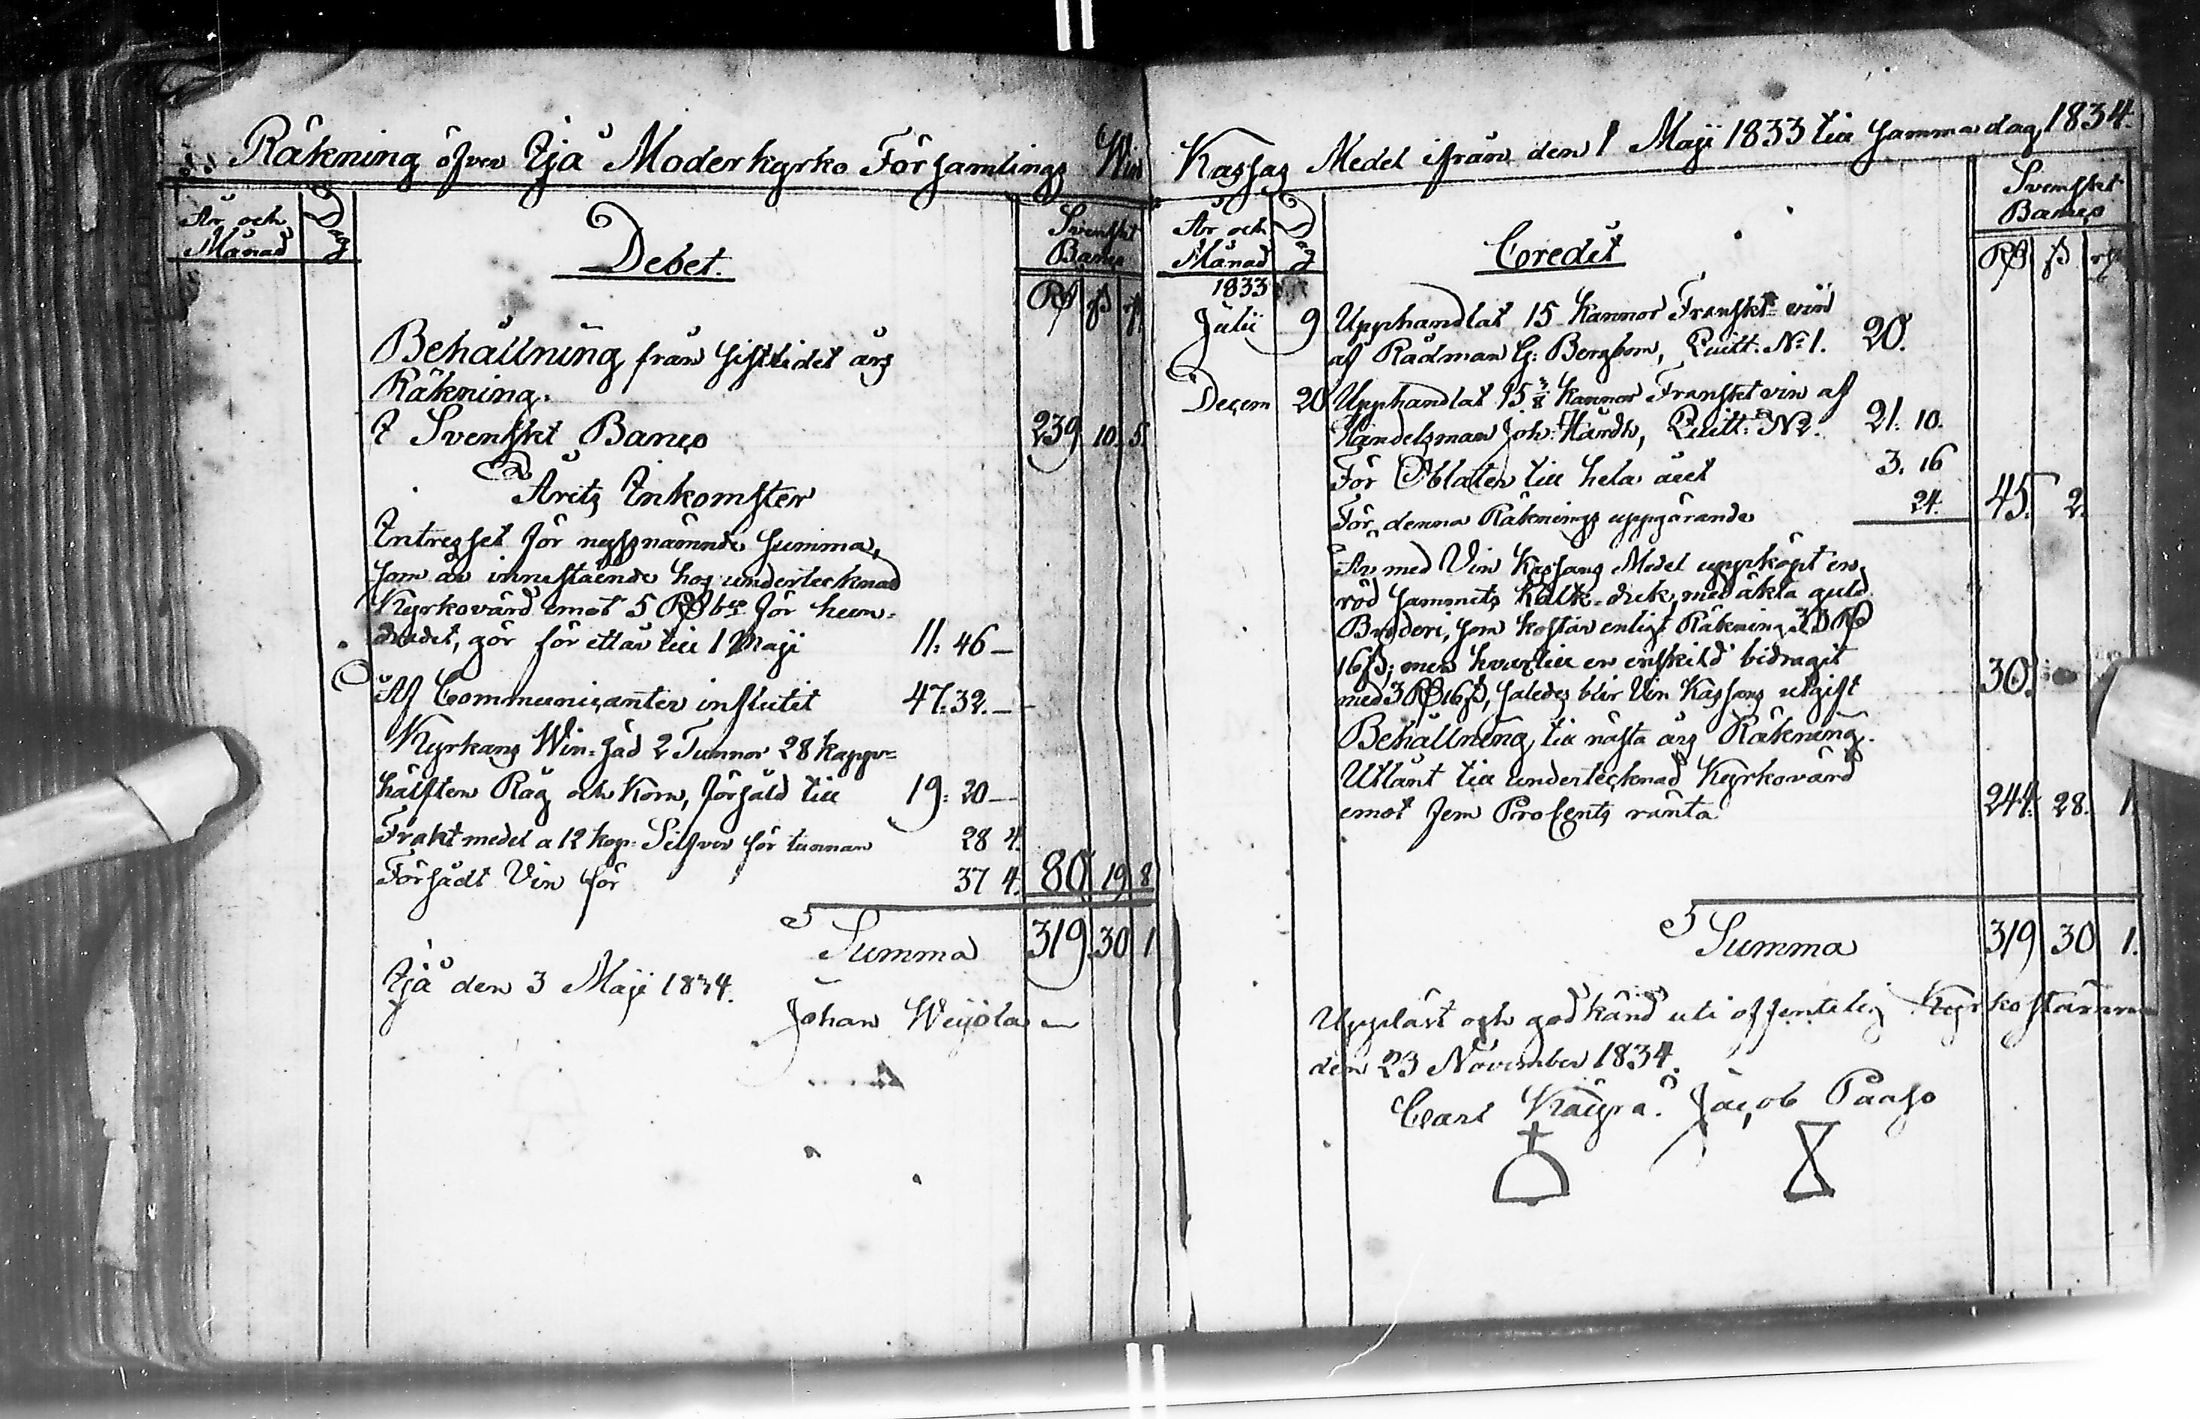 Räkning öfver Ijå Moderkyrko Församlings Win
År och
Månad
Dag
Debet.
Svenskt
Banco
Rd ß rst
Behållning från sistlidet års
Räkning.
I Svenskt Banco 239 10. 5.
Årets Inkomster
Intresset för nyssnämnde summa,
som är innestående hos undertecknad
Kyrkovärd emot 5 Rd b:o för hun-
dradet, gör för ett år till 1 Maji 11: 46 —
Af Communicanter influtit 47: 32. —
Kyrkans Win-säd 2 Tunnor 28 kappr
hälften Råg och Korn, försåld till 19: 20 —
Fraktmedel a 12 kop: Silfver för tunnan 28 4.
Försådt Vin för 37 4. 80 19 8
Summa 319 30 1
Ijå den 3 Maji 1834.
Johan Weijola
Kassas Medel ifrån den 1 Maji 1833 till samma dag 1834.
År och
Månad
Dag
Credit
Svenskt
Banco
Rd ß rst
1833
Julii 9 Upphandlat 15 Kannor Franskt vin
af Rådman G: Bergbom, Quitt. No 1. 20.
Decem 20 Upphandlat 15 3/8 Kannor Franskt vin af
Handelsman Joh: Hårdh, Quitt: No 2. 21. 10.
För Oblater till hela året 3. 16
För denna Räknings uppgörande 24. 45. 2.
Är med Vin Kassans Medel uppköpt en
röd sammets Kalk-duk, med äkta guld
Broderi, som kostar enligt Räkning 33 Rd
16 ß; men hvartill en enskild bidragit
med 3 Rd 16 ß, således blir Vin Kassans utgift 30.
Behållning till nästa års Räkning.
Utlånt till undertecknad Kyrkovärd
emot fem Procents ränta 244. 28. 1.
Summa 319 30 1.
Uppläst och godkänd uti offentelig Kyrkostämma
den 23 November 1834.
Carl Käyrä. Jacob Paaso